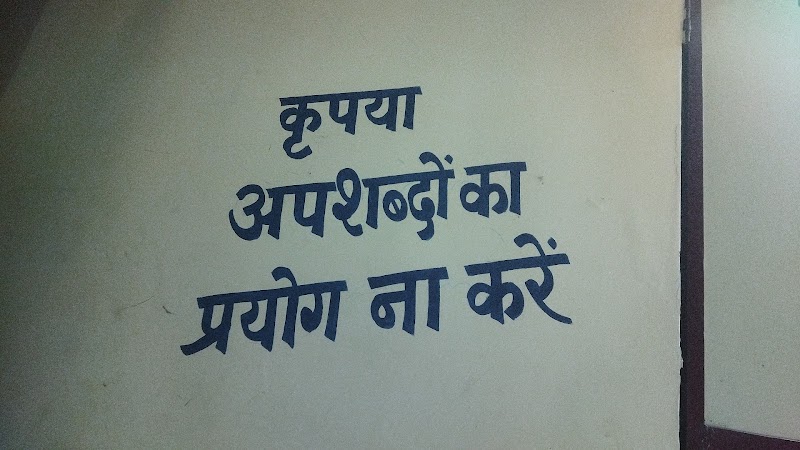 कृपया
अपशब्दों का
प्रयोग ना करें